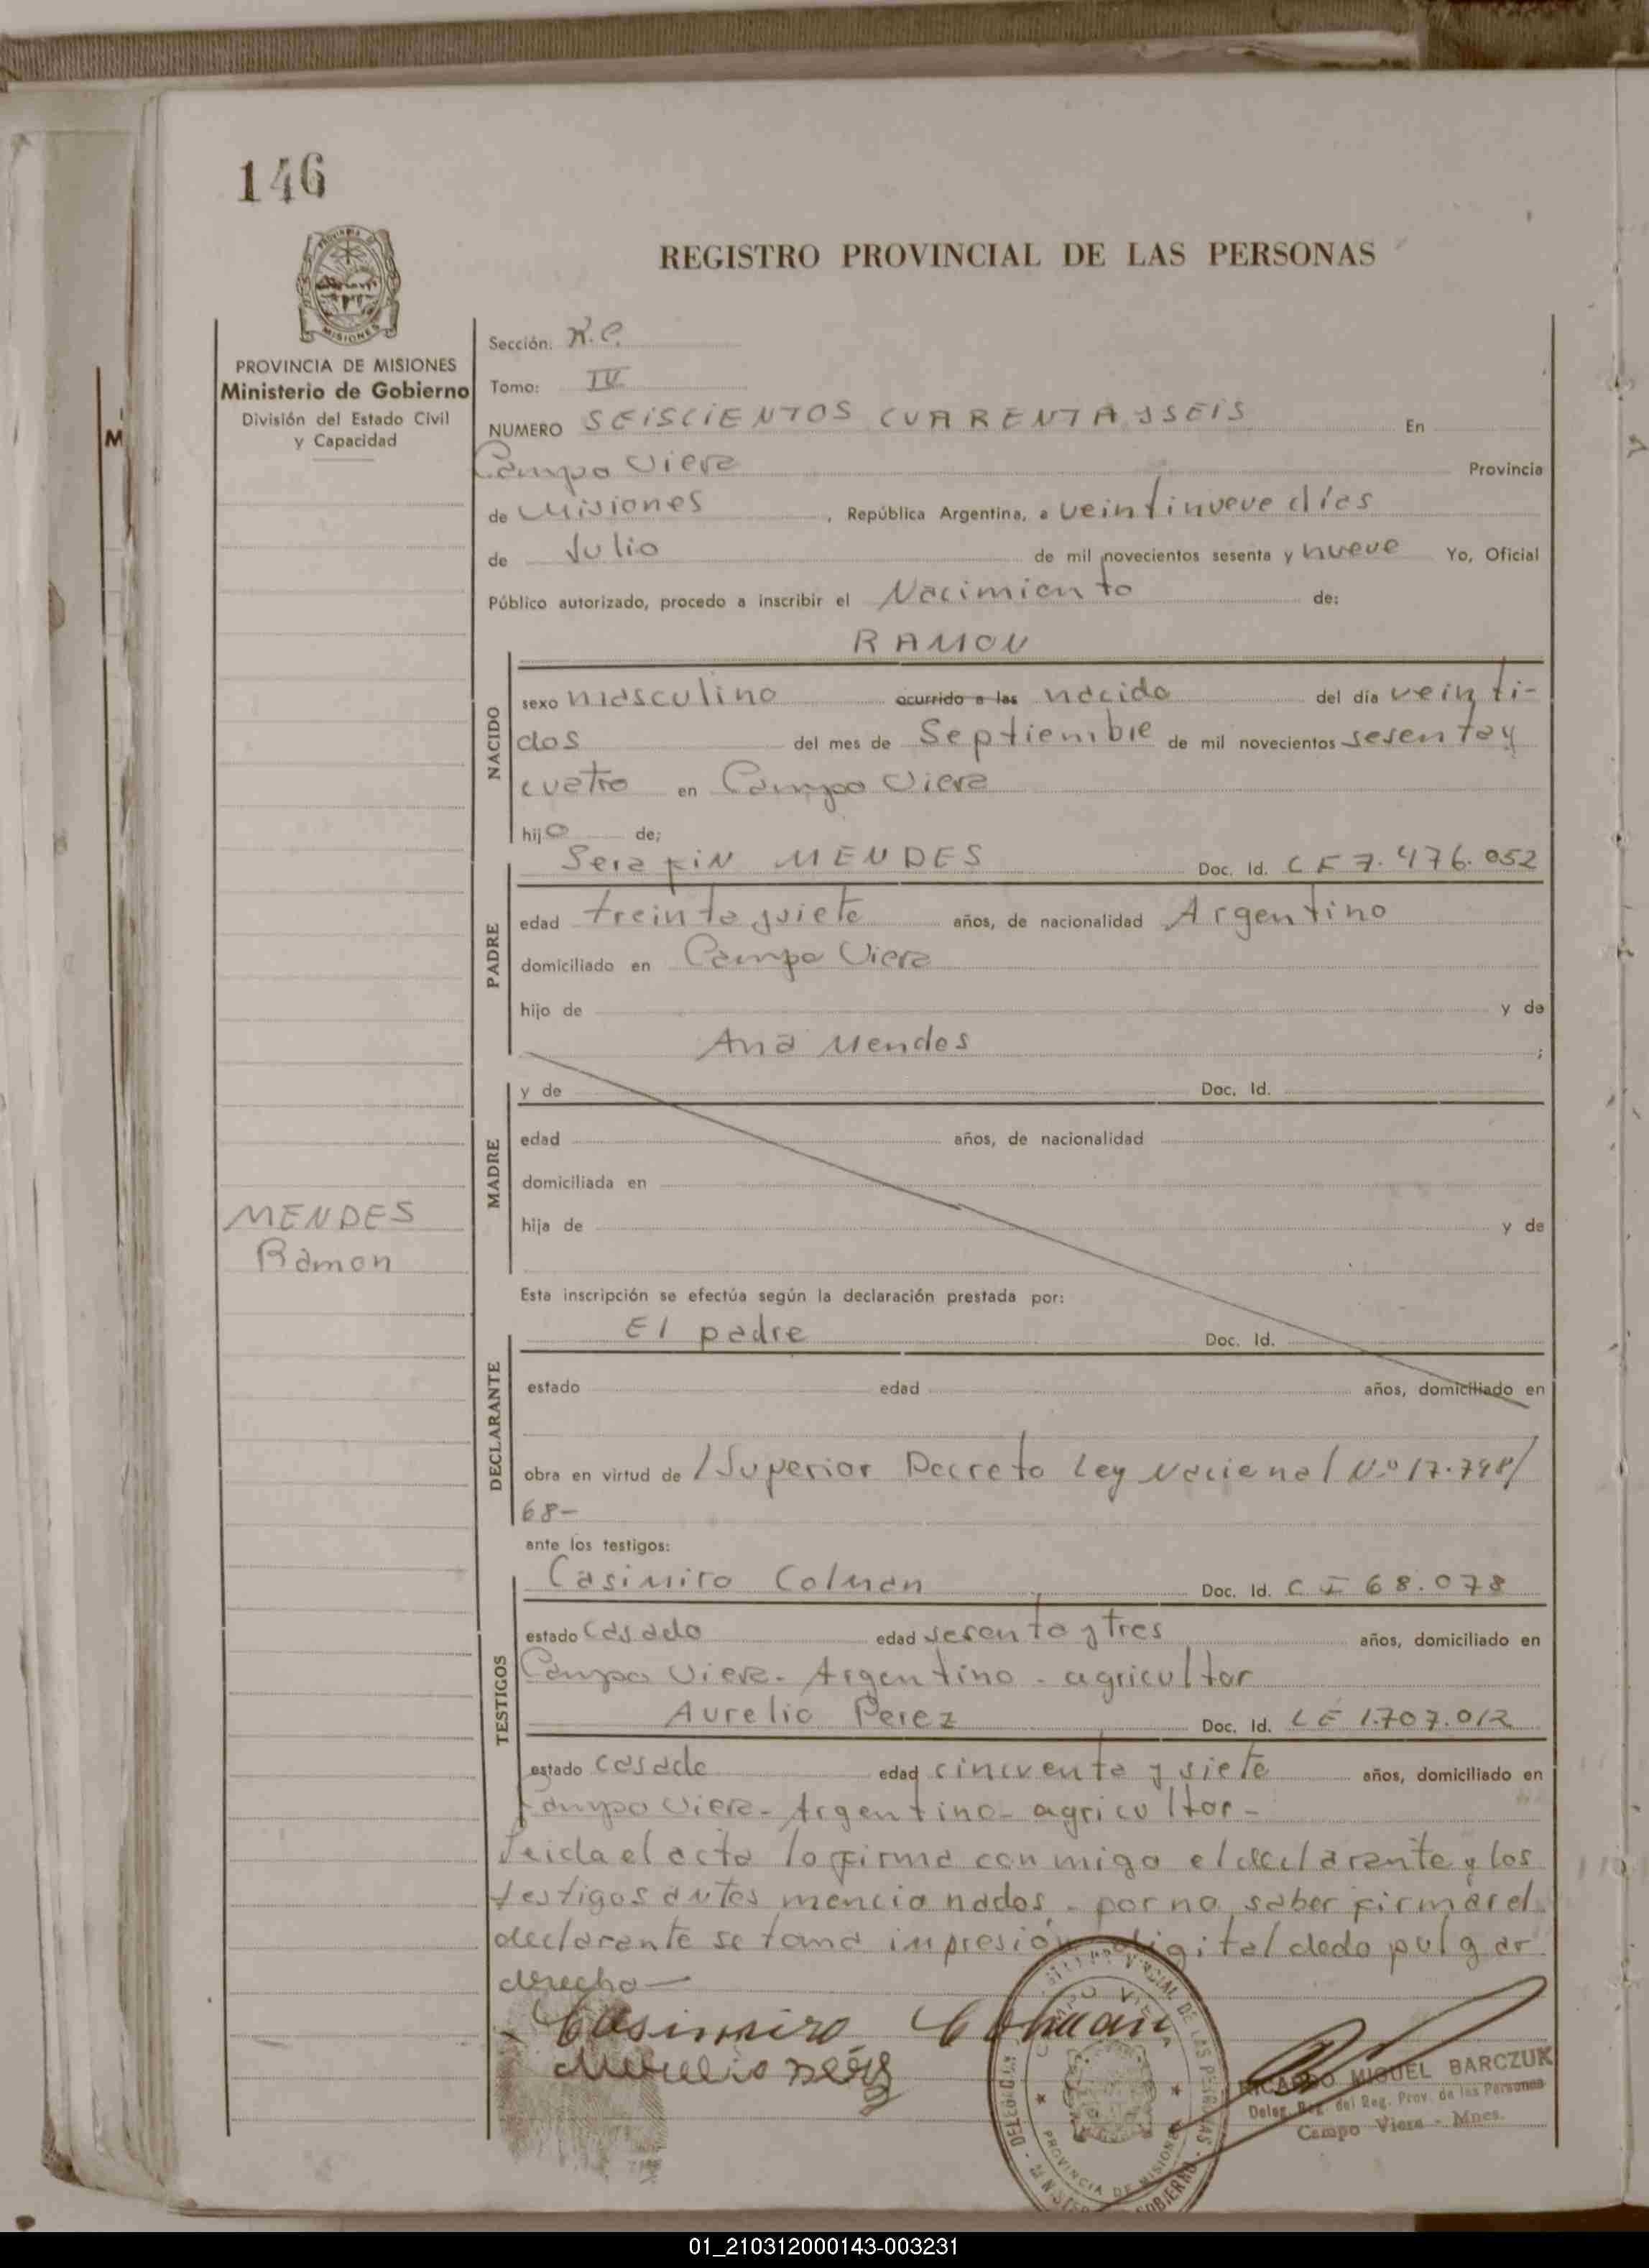 146
REGISTRO PROVINCIAL DE LAS PERSONAS
MISIONES
PROVINCIA DE MISIONES
Ministerio de Gobierno
División del Estado Civil
y Capacidad
M
Sección: R.C.
Tomo: IV
NUMERO SEISCIENTOS CUARENTA Y SEIS En
Campo Viera Provincia
de Misiones, República Argentina, a veintinueve días
de Julio de mil novecientos sesenta y nueve Yo, Oficial
Público autorizado, procedo a inscribir el Nacimiento de:
RAMON
NACIDO
sexo masculino ocurrido a las nacido del día veinti-
dos del mes de Septiembre de mil novecientos sesenta y
cuatro en Campo Viera
hijo de;
PADRE
Serafin MENDES Doc. Id. LE 7.476.052
edad treinta y siete años, de nacionalidad Argentino
domiciliado en Campo Viera
hijo de y de
Ana Mendes ;
MADRE
y de Doc. Id.
edad años, de nacionalidad
domiciliada en
hija de y de
MENDES
Ramon
Esta inscripción se efectúa según la declaración prestada por:
DECLARANTE
El padre Doc. Id.
estado edad años, domiciliado en
obra en virtud de /Superior Decreto Ley Nacional Nº 17.798/
68-
ante los testigos:
TESTIGOS
Casimiro Colman Doc. Id. C I 68.078
estado casado edad sesenta y tres años, domiciliado en
Campo Viera- Argentino - agricultor
Aurelio Perez Doc. Id. LE 1.707.012
estado casado edad cincuenta y siete años, domiciliado en
Campo Viera- Argentino- agricultor-
Leida el acta la firma conmigo el declarante y los
testigos antes mencionados - por no saber firmar el
declarante se toma impresión digital dedo pulgar
derecho-
Casimiro Colman
RICARDO MIGUEL BARCZUK
Deleg. Reg. del Reg. Prov. de las Personas
Campo Viera - Mnes.
CAMPO VIERA
PROVINCIA DE MISIONES
01_210312000143-003231